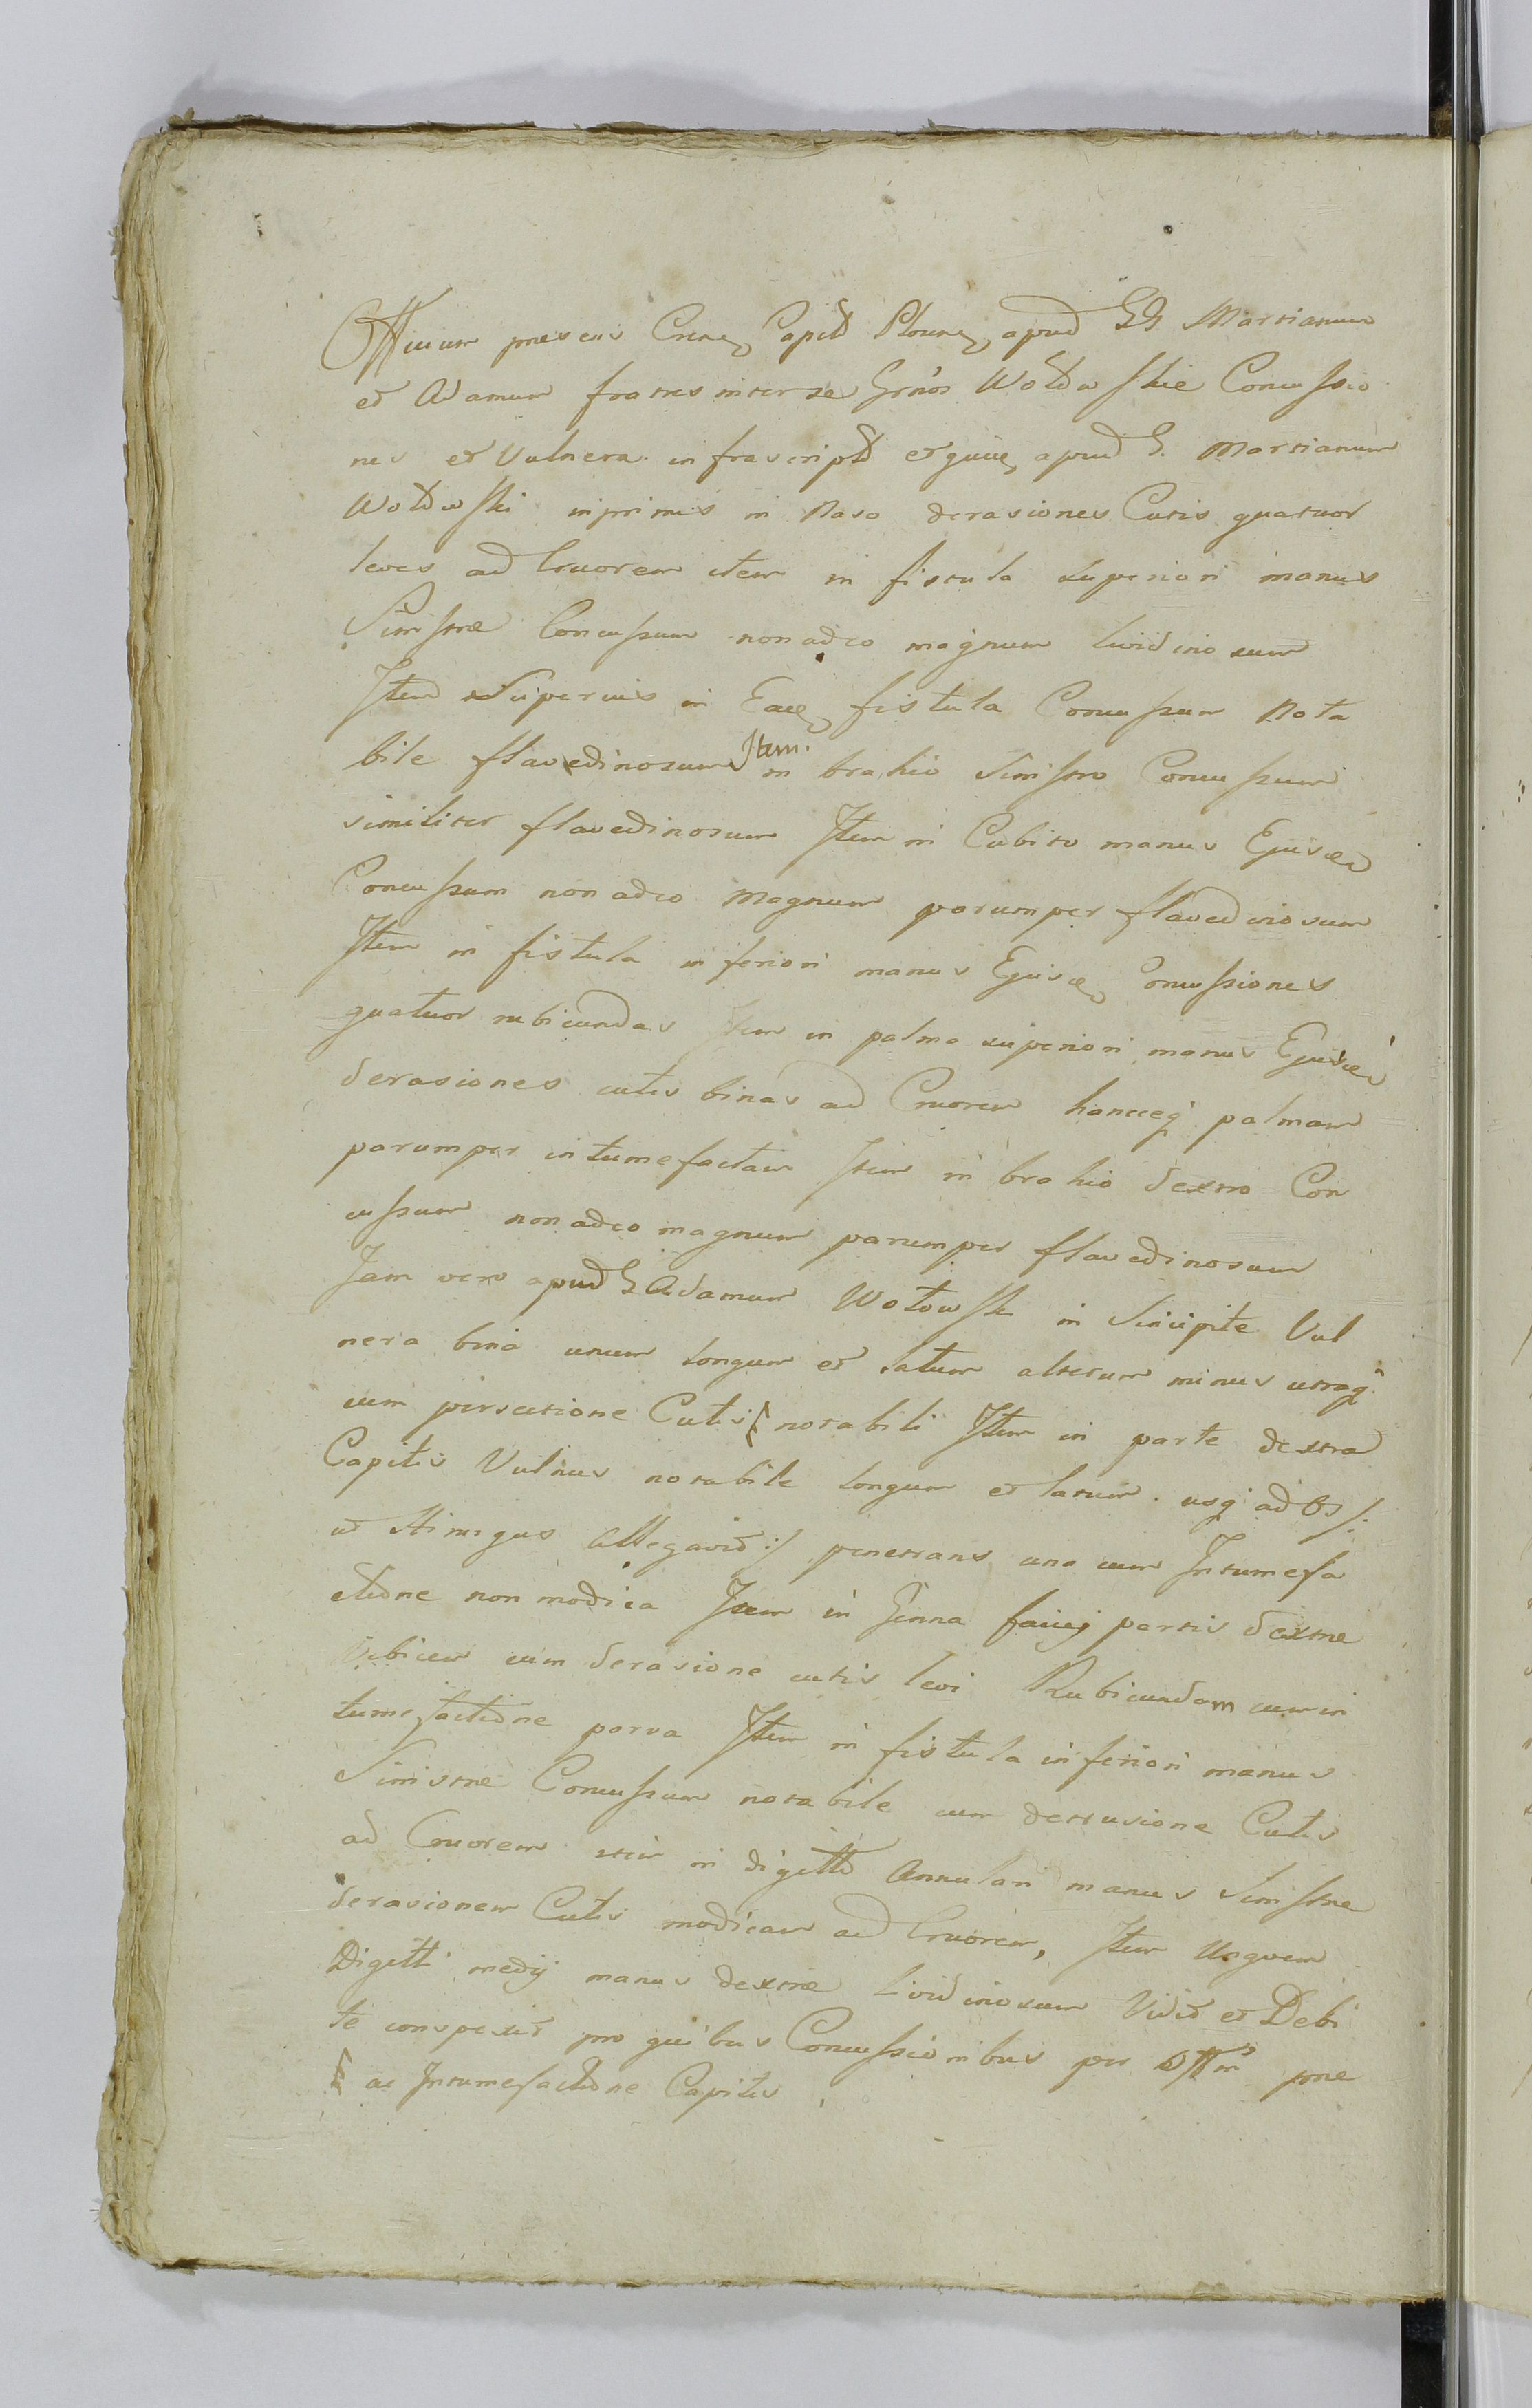 Officium praesens Castr Capitlē Plocen apud GG Martianum
et Adamum fratres inter se Grmos Wołowskie Concussio
nes et Vulnera infrascriptā et quiē apud G. Martianum
Wołowski inprimis in Naso derasiones Cutis quatuor
leves ad Cruorem item in fistula superiori manus
Sinistrae Concussum non adeo magnum lividinosum
Item Superius in Eadē fistula Concussum Nota
bile flavedinosum Item in brahio Sinistro Concussum
similiter flavedinosum Item in Cubito manus Ejusdē
Concussum non adeo Magnum parumper flavedinosum
Item in fistula inferiori manus Ejusdē Concussiones
quatuor rubicundas Item in palma superiori manus Ejusdē
derasiones cutis binas ad Cruorem hancq palmam
parumper intumefactam Item in brahio dextro Con
cussum non adeo magnum parumper flavedinosum
Jam vero apud G Adamum Wołowski in Sincipite Vul
nera bina unum longum et latum alterum minus utraq
cum persectione Cutis notabili Item in parte dextra
Capitis Vulnus notabile longum et latum usq ad Os /:
ut Chirurgus Allegavit :/ penetrans una cum Intumefa
ctione non modica Item in Genna faciej partis dextrae
Vibicem cum derasione cutis levi Rubicundam cum in
tumefactione parva Item in fistula inferiori manus
Sinistrae Concussum notabile cum detrusione Cutis
ad Cruorem item in digitto Annulari manus Sinistrae
derasionem Cutis modicam ad Cruorem, Item Unguem
Digitti medij manus dextrae lividinosum Vidit et Debi
te conspexit pro quibus Concussionibus per Offm prae
ac Intumefactione Capitis